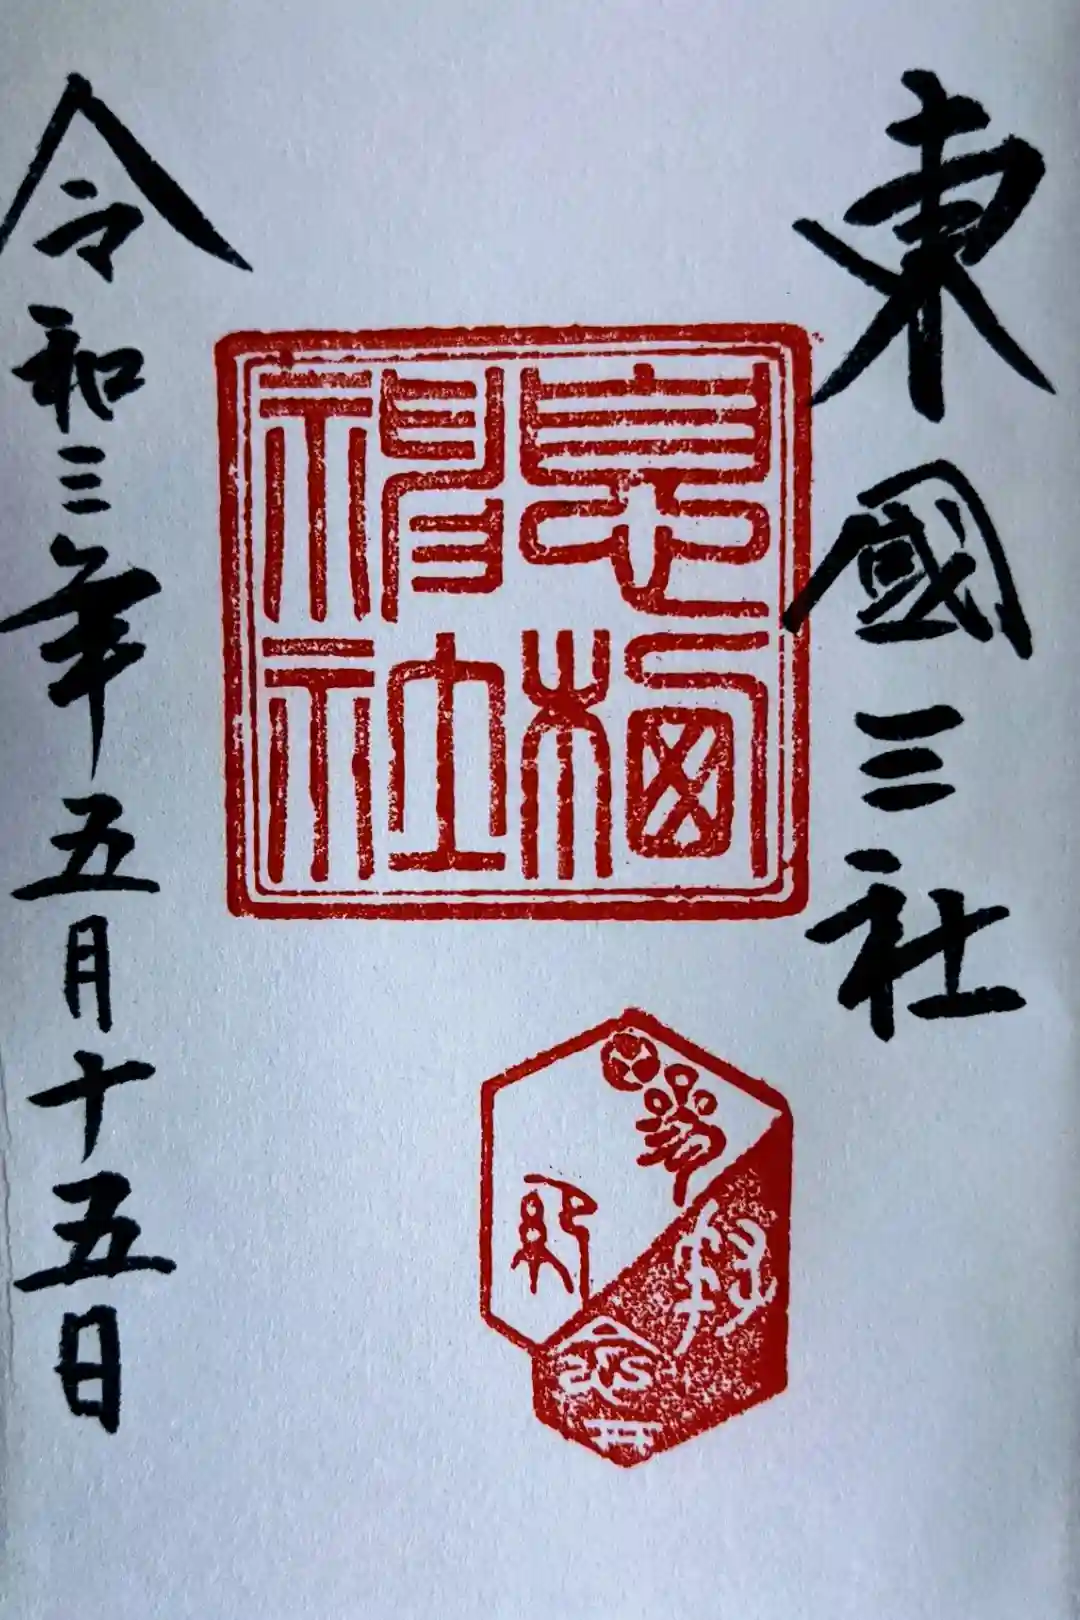 東國三社
息栖
神社
令和三年五月十五日